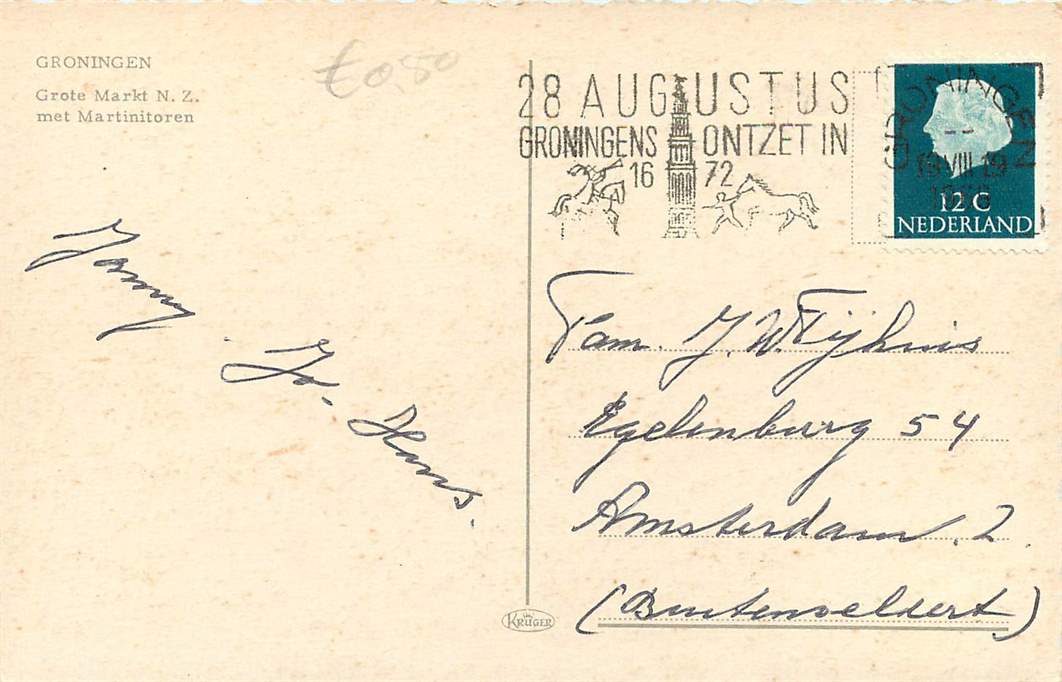 GRONINGEN
Grote Markt N. Z.
met Martinitoren
€0,50
28 AUGUSTUS
GRONINGENS ONTZET IN
16 72
GRONINGEN
VIII 19
12 C
NEDERLAND
Janny. Jo. Hans.
Fam. J. W. Tijhuis
Egelenburg 54
Amsterdam. 2
(Buitenveldert)
KRÜGER